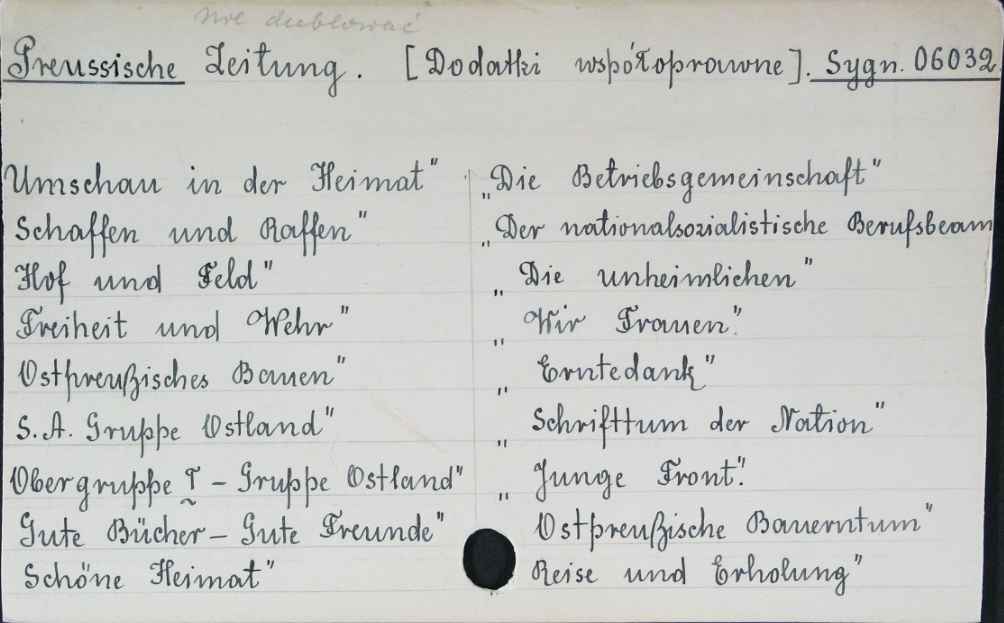 nie dublować
Preussische Zeitung. [Dodatki współoprawne]. Sygn. 06032
Umschau in der Heimat"
Schaffen und Raffen"
Hof und Feld"
Freiheit und Wehr"
Ostpreußisches Bauen"
S.A. Gruppe Ostland"
Obergruppe I - Gruppe Ostland"
Gute Bücher - Gute Freunde"
Schöne Heimat"
„Die Betriebsgemeinschaft"
„Der nationalsozialistische Berufsbeam
„Die unheimlichen"
„Wir Frauen".
„Erntedank"
„Schrifttum der Nation"
„Junge Front".
Ostpreußische Bauerntum"
Reise und Erholung"